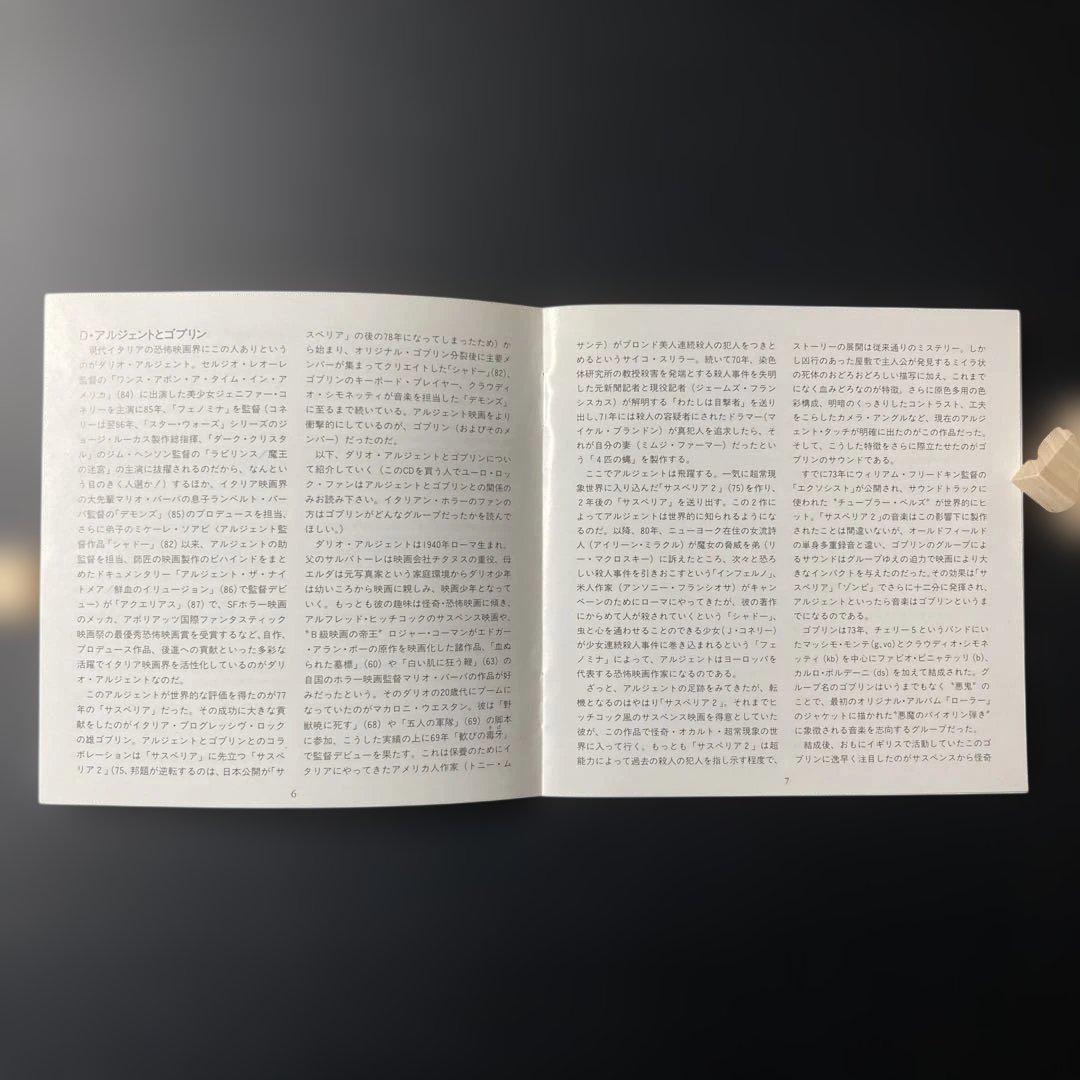 D・アルジェントとゴブリン
　現代イタリアの恐怖映画界にこの人ありという
のがダリオ・アルジェント。セルジオ・レオーレ
監督の「ワンス・アポン・ア・タイム・イン・ア
メリカ」(84) に出演した美少女ジェニファー・コ
ネリーを主演に85年、「フェノミナ」を監督 (コネ
リーは翌86年、「スター・ウォーズ」シリーズのジ
ョージ・ルーカス製作総指揮、「ダーク・クリスタ
ル」のジム・ヘンソン監督の「ラビリンス／魔王
の迷宮」の主演に抜擢されるのだから、なんとい
う目のきく人選か！) するほか、イタリア映画界
の大先輩マリオ・バーバの息子ランベルト・バー
バ監督の「デモンズ」(85)のプロデュースを担当、
さらに弟子のミケーレ・ソアビ〈アルジェント監
督作品「シャドー」(82) 以来、アルジェントの助
監督を担当、師匠の映画製作のビハインドをまと
めたドキュメンタリー「アルジェント・ザ・ナイ
トメア／鮮血のイリュージョン」(86) で監督デビ
ュー〉が「アクエリアス」(87) で、SFホラー映画
のメッカ、アボリアッツ国際ファンタスティック
映画祭の最優秀恐怖映画賞を受賞するなど、自作、
プロデュース作品、後進への貢献といった多彩な
活躍でイタリア映画界を活性化しているのがダリ
オ・アルジェントなのだ。
　このアルジェントが世界的な評価を得たのが77
年の「サスペリア」だった。その成功に大きな貢
献をしたのがイタリア・プログレッシヴ・ロック
の雄ゴブリン。アルジェントとゴブリンとのコラ
ボレーションは「サスペリア」に先立つ「サスペ
リア２」(75、邦題が逆転するのは、日本公開が「サ
スペリア」の後の78年になってしまったため) か
ら始まり、オリジナル・ゴブリン分裂後に主要メ
ンバーが集まってクリエイトした「シャドー」(82)、
ゴブリンのキーボード・プレイヤー、クラウディ
オ・シモネッティが音楽を担当した「デモンズ」
に至るまで続いている。アルジェント映画をより
衝撃的にしているのが、ゴブリン (およびそのメ
ンバー) だったのだ。
　以下、ダリオ・アルジェントとゴブリンについ
て紹介していく (このCDを買う人でユーロ・ロッ
ク・ファンはアルジェントとゴブリンとの関係の
みお読み下さい。イタリアン・ホラーのファンの
方はゴブリンがどんなグループだったかを読んで
ほしい。)
　ダリオ・アルジェントは1940年ローマ生まれ、
父のサルバトーレは映画会社チタヌスの重役、母
エルダは元写真家という家庭環境からダリオ少年
は幼いころから映画に親しみ、映画少年となって
いく。もっとも彼の趣味は怪奇・恐怖映画に傾き、
アルフレッド・ヒッチコックのサスペンス映画や、
〝Ｂ級映画の帝王〟ロジャー・コーマンがエドガー
・アラン・ポーの原作を映画化した諸作品、「血ぬ
られた墓標」(60) や「白い肌に狂う鞭」(63) の
自国のホラー映画監督マリオ・バーバの作品が好
みだったという。そのダリオの20歳代にブームに
なっていたのがマカロニ・ウエスタン。彼は「野
獣暁に死す」(68) や「五人の軍隊」(69) の脚本
に参加、こうした実績の上に69年「歓びの毒牙」
で監督デビューを果たす。これは保養のためにイ
タリアにやってきたアメリカ人作家 (トニー・ム
6
サンテ) がブロンド美人連続殺人の犯人をつきと
めるというサイコ・スリラー。続いて70年、染色
体研究所の教授殺害を発端とする殺人事件を失明
した元新聞記者と現役記者 (ジェームズ・フラン
シスカス) が解明する「わたしは目撃者」を送り
出し、71年には殺人の容疑者にされたドラマー(マ
イケル・ブランドン) が真犯人を追求したら、そ
れが自分の妻 (ミムジ・ファーマー) だったとい
う「４匹の蝿」を製作する。
　ここでアルジェントは飛躍する。一気に超常現
象世界に入り込んだ「サスペリア２」(75) を作り、
２年後の「サスペリア」を送り出す。この２作に
よってアルジェントは世界的に知られるようにな
るのだ。以降、80年、ニューヨーク在住の女流詩
人 (アイリーン・ミラクル) が魔女の脅威を弟 (リ
ー・マクロスキー) に訴えたところ、次々と恐ろ
しい殺人事件を引きおこすという「インフェルノ」、
米人作家 (アンソニー・フランシオサ) がキャン
ペーンのためにローマにやってきたが、彼の著作
にからめて人が殺されていくという「シャドー」、
虫と心を通わせることのできる少女 (J・コネリー)
が少女連続殺人事件に巻き込まれるという「フェ
ノミナ」によって、アルジェントはヨーロッパを
代表する恐怖映画作家になるのである。
　ざっと、アルジェントの足跡をみてきたが、転
機となるのはやはり「サスペリア２」。それまでヒ
ッチコック風のサスペンス映画を得意としていた
彼が、この作品で怪奇・オカルト・超常現象の世
界に入って行く。もっとも「サスペリア２」は超
能力によって過去の殺人の犯人を指し示す程度で、
ストーリーの展開は従来通りのミステリー。しか
し凶行のあった屋敷で主人公が発見するミイラ状
の死体のおどろおどろしい描写に加え、これまで
になく血みどろなのが特徴。さらに原色多用の色
彩構成、明暗のくっきりしたコントラスト、工夫
をこらしたカメラ・アングルなど、現在のアルジ
ェント・タッチが明確に出たのがこの作品だった。
そして、こうした特徴をさらに際立たせたのがゴ
ブリンのサウンドである。
　すでに73年にウィリアム・フリードキン監督の
「エクソシスト」が公開され、サウンドトラックに
使われた〝チューブラー・ベルズ〟が世界的にヒ
ット。「サスペリア２」の音楽はこの影響下に製作
されたことは間違いないが、オールドフィールド
の単身多重録音と違い、ゴブリンのグループによ
るサウンドはグループゆえの迫力で映画により大
きなインパクトを与えたのだった。その効果は「サ
スペリア」「ゾンビ」でさらに十二分に発揮され、
アルジェントといったら音楽はゴブリンというま
でになるのである。
　ゴブリンは73年、チェリー５というバンドにい
たマッシモ・モンテ(g,vo)とクラウディオ・シモネ
ッティ(kb)を中心にファビオ・ピニャテッリ(b)、
カルロ・ボルデーニ(ds) を加えて結成された。グ
ループ名のゴブリンはいうまでもなく〝悪鬼〟の
ことで、最初のオリジナル・アルバム「ローラー」
のジャケットに描かれた〝悪魔のバイオリン弾き〟
に象徴される音楽を志向するグループだった。
　結成後、おもにイギリスで活動していたこのゴ
ブリンに逸早く注目したのがサスペンスから怪奇
7